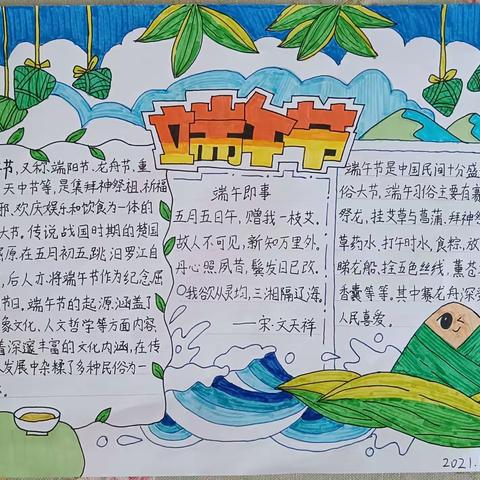 端午节
节,又称端阳节、龙舟节、重
天中节等,是集拜神祭祖、祈福
邪、欢庆娱乐和饮食为一体的
大节。传说战国时期的楚国
屈原在五月初五跳汨罗江自
,后人亦将端午节作为纪念屈
节日。端午节的起源,涵盖了
象文化、人文哲学等方面内容,
着深邃丰富的文化内涵,在传
发展中杂糅了多种民俗为一
端午即事
五月五日午,赠我一枝艾。
故人不可见,新知万里外。
丹心照夙昔,鬓发日已改。
我欲从灵均,三湘隔辽海。
——宋·文天祥
端午节是中国民间十分盛
俗大节,端午习俗主要有
祭龙,挂艾草与菖蒲,拜神祭
草药水,打午时水,食粽,放
睇龙船,拴五色丝线,薰苍
香囊等等。其中赛龙舟深
人民喜爱。
2021.